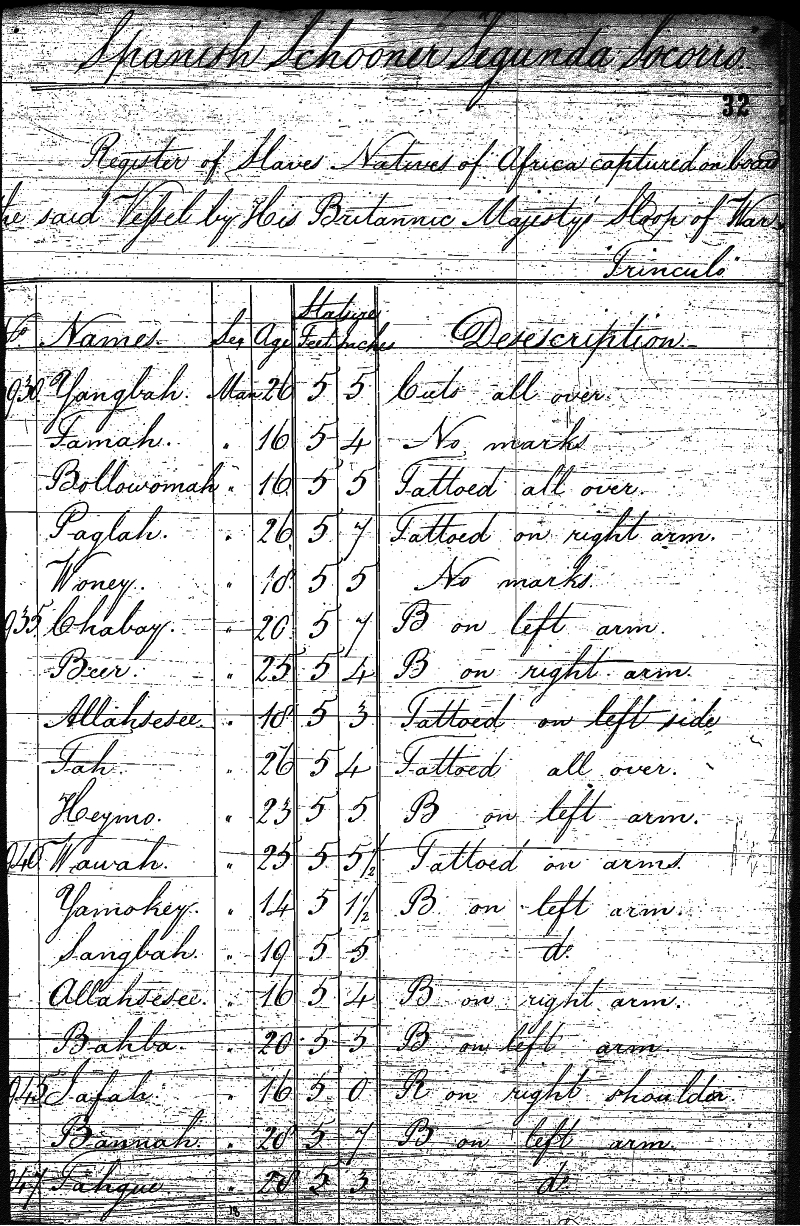 Spanish Schooner Segunda Socorro.
32
Register of Slaves Natives of Africa captured on board
the said Vessel by His Britannic Majesty's Sloop of War
"Trinculo"
No Names. Sex Age Stature Feet Inches Desescription
930 Yangbah. Man 26 5 5 Cuts all over.
Famah. " 16 5 4 No marks
Bollowomah " 16 5 5 Tattoed all over.
Paglah. " 26 5 7 Tattoed on right arm.
Woney. " 18 5 5 No marks.
935 Chabay. " 20 5 7 B on left arm.
Beer. " 25 5 4 B on right arm.
Allahsesee. " 18 5 3 Tattoed on left side
Fah. " 26 5 4 Tattoed all over.
Heymo. " 23 5 5 B on left arm.
940 Wawah. " 25 5 5½ Tattoed on arms.
Yamokey. " 14 5 1½ B on left arm.
Sangbah. " 19 5 5 do.
Allahsesee. " 16 5 4 B on right arm.
Bahba. " 20 5 5 B on left arm.
945 Safah. " 16 5 0 R on right shoulder.
Bannah. " 28 5 7 B on left arm.
947 Fahque " 28 5 3 do.
18